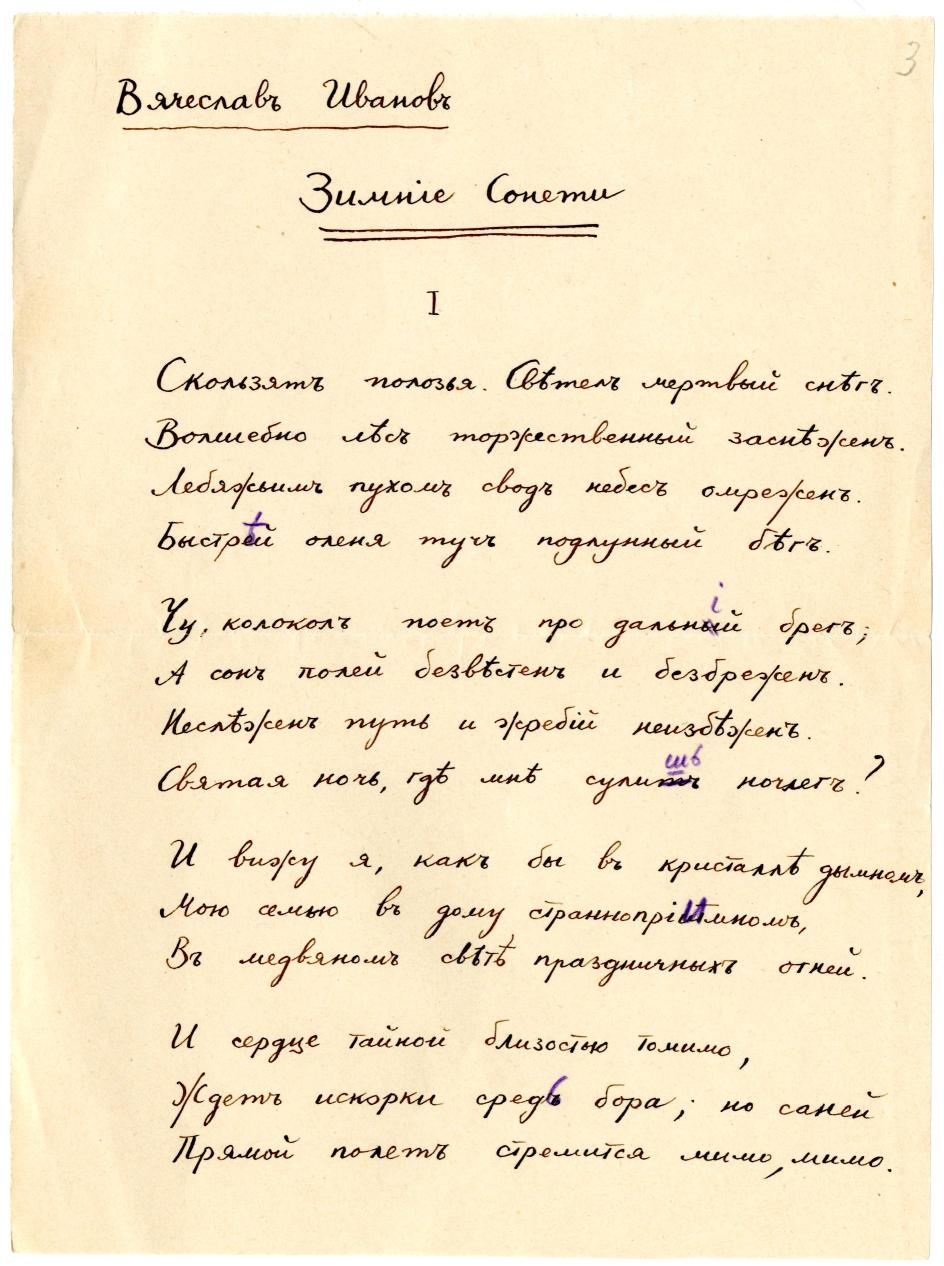 3
Вячеславъ Ивановъ
Зимніе Сонеты
I
Скользятъ полозья. Свѣтелъ мертвый снѣгъ.
Волшебно лѣсъ торжественный заснѣженъ.
Лебяжьимъ пухомъ сводъ небесъ омреженъ.
Быстрѣй оленя тучъ подлунный бѣгъ.
Чу, колоколъ поетъ про дальній брегъ;
А сонъ полей безвѣстенъ и безбреженъ.
Неслѣженъ путь и жребій неизбѣженъ.
Святая ночь, гдѣ мнѣ сулишь ночлегъ?
И вижу я, какъ бы въ кристаллѣ дымномъ,
Мою семью въ дому страннопріимномъ,
Въ медвяномъ свѣтѣ праздничныхъ огней.
И сердце тайной близостью томимо,
Ждетъ искорки средь бора; но саней
Прямой полетъ стремится мимо, мимо.